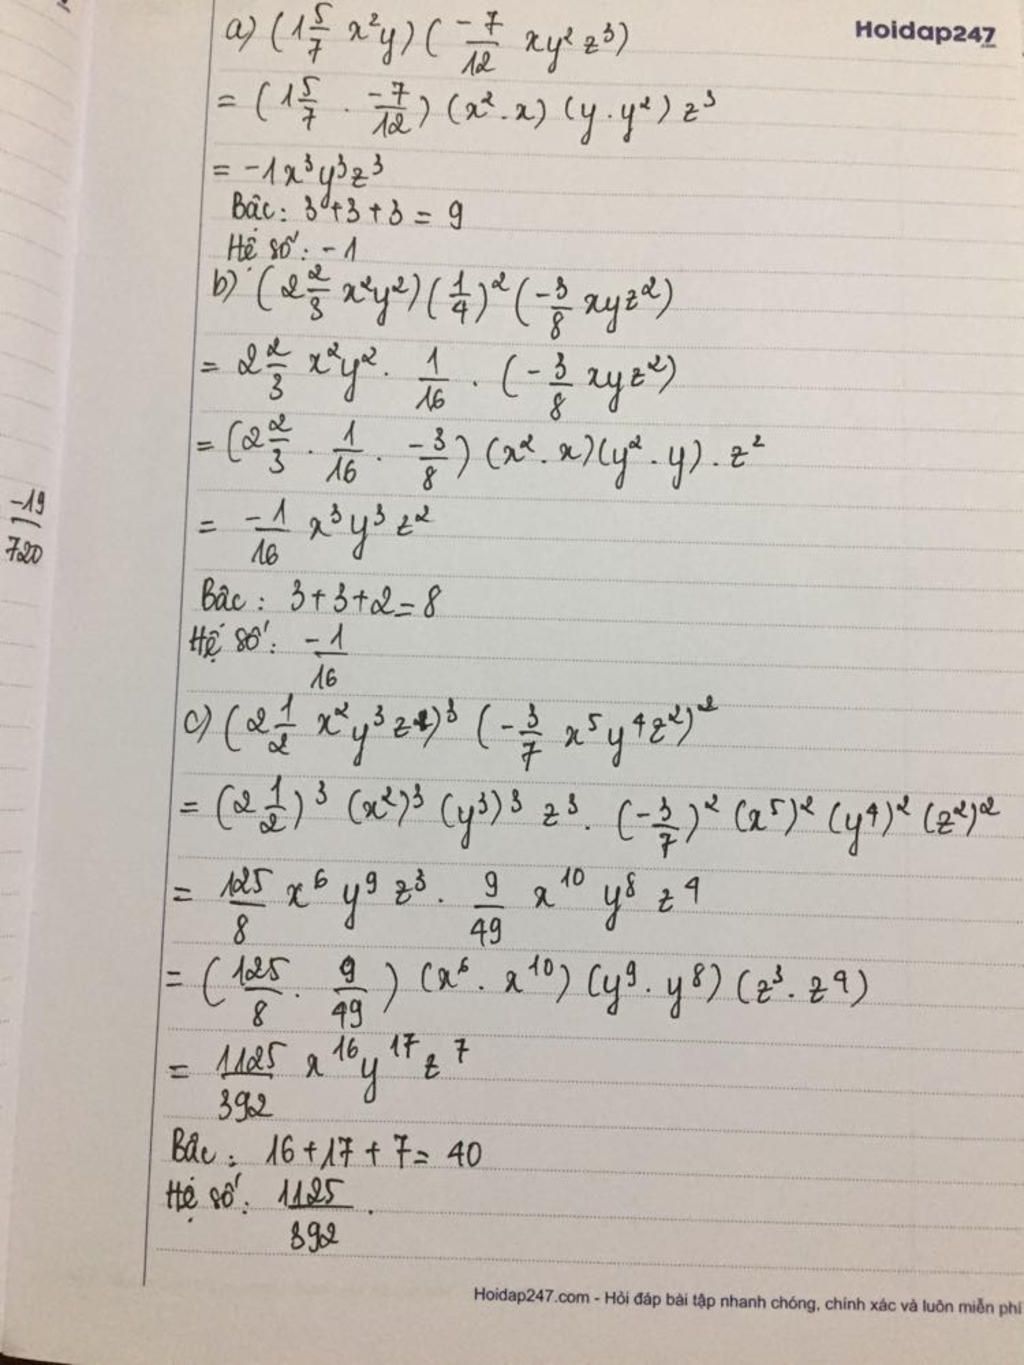 Hoidap247
a) (1 5/7 x²y) (-7/12 xy²z³)
= (1 5/7 . -7/12) (x² . x) (y . y²) z³
= -1x³y³z³
Bậc: 3+3+3 = 9
Hệ số: -1
b) (2 2/3 x²y²) (1/4)² (-3/8 xyz²)
= 2 2/3 x²y² . 1/16 . (-3/8 xyz²)
= (2 2/3 . 1/16 . -3/8) (x² . x)(y² . y) . z²
-19/720
= -1/16 x³y³z²
Bậc: 3+3+2=8
Hệ số: -1/16
c) (2 1/2 x²y³z)³ (-3/7 x⁵y⁴z²)²
= (2 1/2)³ (x²)³ (y³)³ z³ . (-3/7)² (x⁵)² (y⁴)² (z²)²
= 125/8 x⁶ y⁹ z³ . 9/49 x¹⁰ y⁸ z⁴
= (125/8 . 9/49) (x⁶ . x¹⁰) (y⁹ . y⁸) (z³ . z⁴)
= 1125/392 x¹⁶y¹⁷z⁷
Bậc: 16+17+7= 40
Hệ số: 1125/392.
Hoidap247.com - Hỏi đáp bài tập nhanh chóng, chính xác và luôn miễn phí